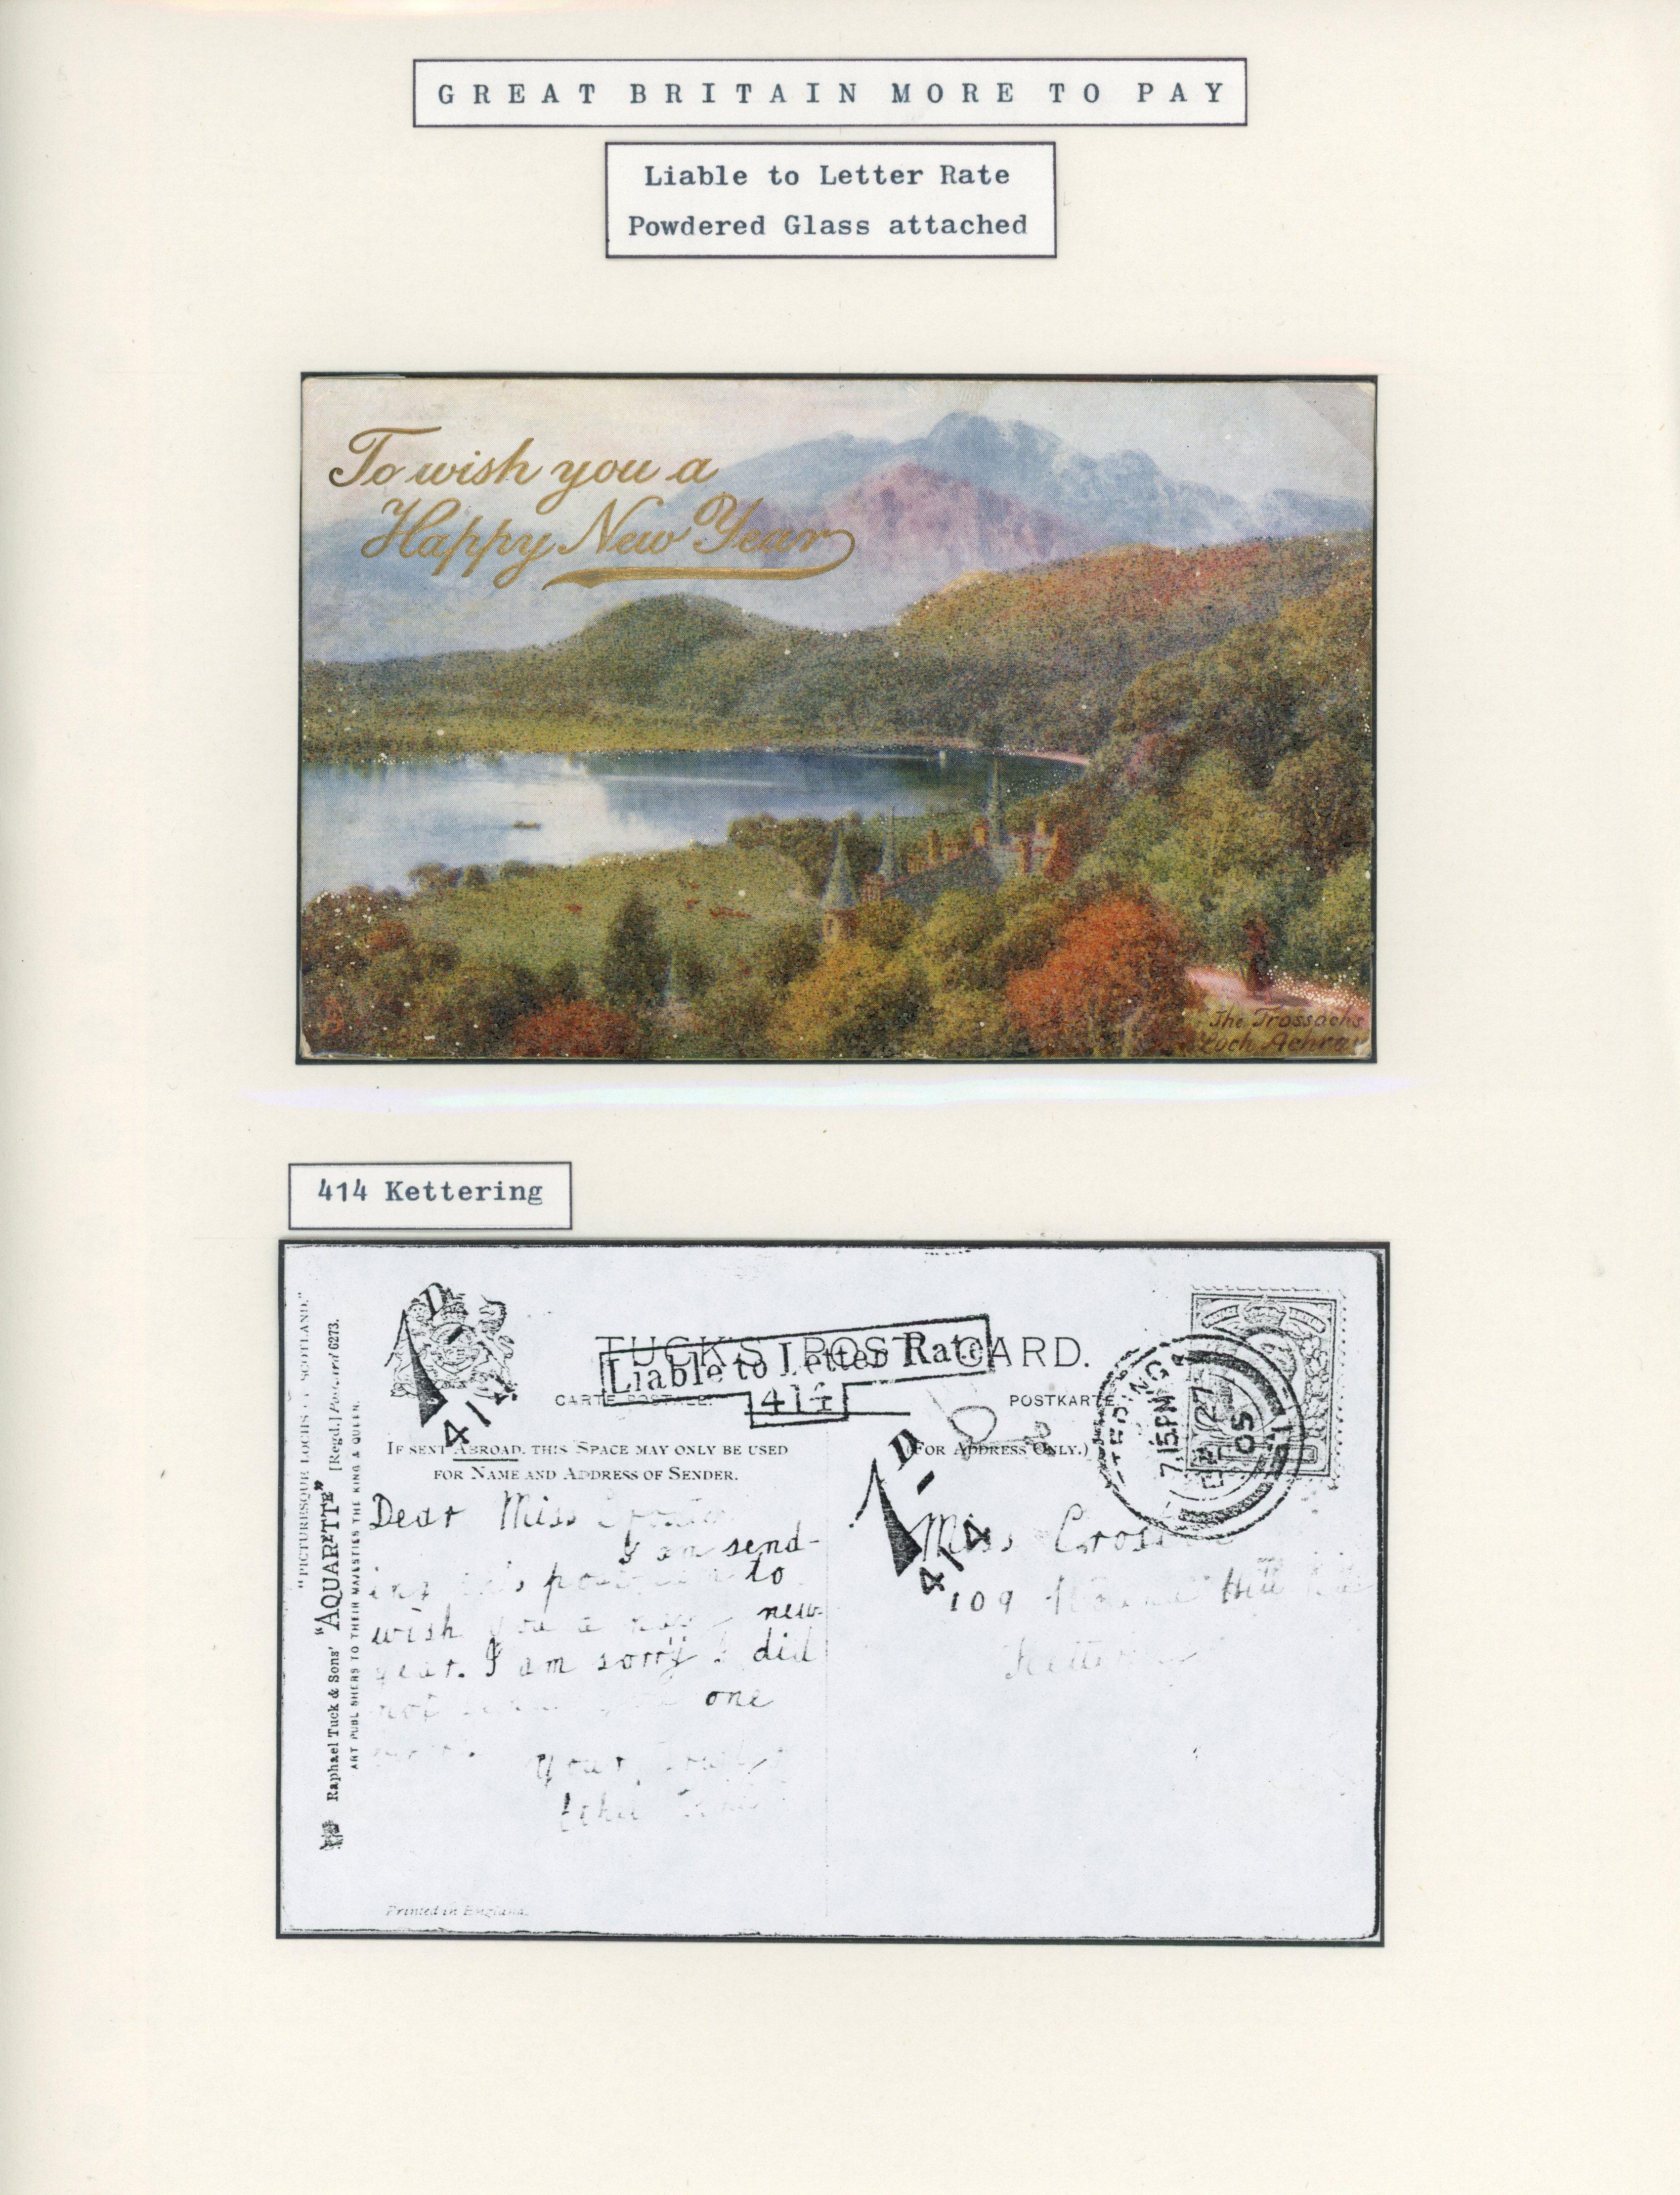 GREAT BRITAIN MORE TO PAY
Liable to Letter Rate
Powdered Glass attached
To wish you a
Happy New Year
The Trossachs
Loch Achray
414 Kettering
"PICTURESQUE LOCHS SCOTLAND."
Raphael Tuck & Sons' "AQUARETTE" [Regd.] Postcard 6273.
ART PUBLISHERS TO THEIR MAJESTIES THE KING & QUEEN.
TUCK'S POST CARD.
Liable to Letter Rate
414
CARTE POSTALE.
POSTKARTE
IF SENT ABROAD, THIS SPACE MAY ONLY BE USED
FOR NAME AND ADDRESS OF SENDER.
(FOR ADDRESS ONLY.)
1D
414
1D
414
7.15PM
27
05
Dear Miss
I am send-
ing this to
wish you a new
year. I am sorry I did
not one
Miss
109 Hill
Printed in England.